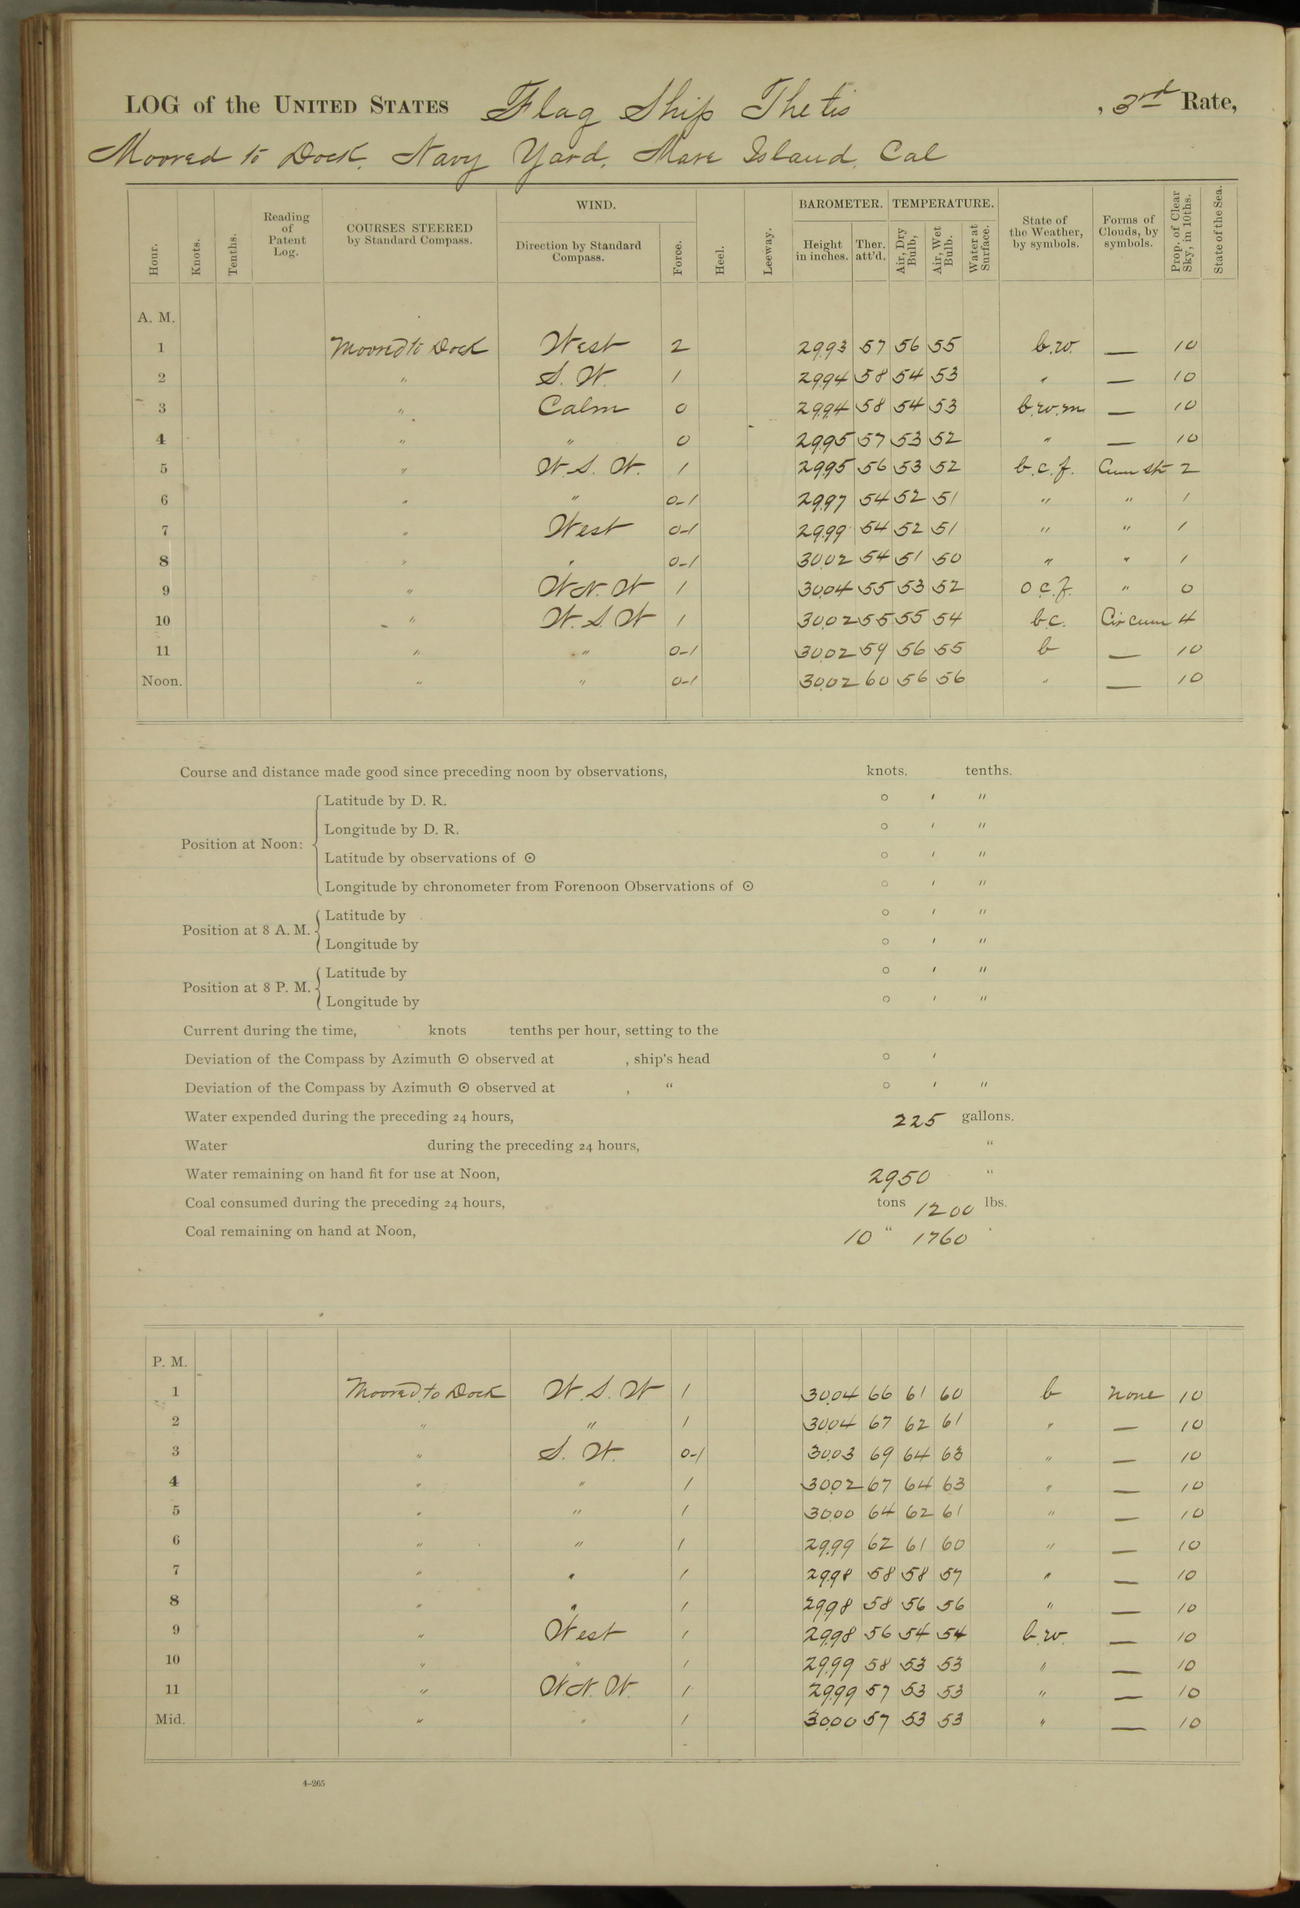 LOG of the UNITED STATES Flag Ship Thetis , 3rd Rate,
Moored to Dock, Navy Yard, Mare Island, Cal
Hour. Knots. Tenths. Reading of Patent Log. COURSES STEERED by Standard Compass. WIND. Direction by Standard Compass. Force. Heel. Leeway. BAROMETER. Height in inches. Ther. att'd. TEMPERATURE. Air, Dry Bulb, Air, Wet Bulb. Water at Surface. State of the Weather, by symbols. Forms of Clouds, by symbols. Prop. of Clear Sky, in 10ths. State of the Sea.
A. M.
1 Moored to Dock West 2 29.93 57 56 55 b.w. — 10
2 " S. W. 1 29.94 58 54 53 " — 10
3 " Calm 0 29.94 58 54 53 b.w.m — 10
4 " " 0 29.95 57 53 52 " — 10
5 " W.S.W. 1 29.95 56 53 52 b.c.f. Cum st 2
6 " " 0-1 29.97 54 52 51 " " 1
7 " West 0-1 29.99 54 52 51 " " 1
8 " " 0-1 30.02 54 51 50 " " 1
9 " W.N.W 1 30.04 55 53 52 o.c.f. " 0
10 " W.S.W 1 30.02 55 55 54 b.c. Cir cum 4
11 " " 0-1 30.02 59 56 55 b — 10
Noon. " " 0-1 30.02 60 56 56 " — 10
Course and distance made good since preceding noon by observations, knots, tenths.
Position at Noon: Latitude by D. R. ° ′ ″
Longitude by D. R. ° ′ ″
Latitude by observations of ☉ ° ′ ″
Longitude by chronometer from Forenoon Observations of ☉ ° ′ ″
Position at 8 A. M. Latitude by ° ′ ″
Longitude by ° ′ ″
Position at 8 P. M. Latitude by ° ′ ″
Longitude by ° ′ ″
Current during the time, knots tenths per hour, setting to the
Deviation of the Compass by Azimuth ☉ observed at , ship's head ° ′
Deviation of the Compass by Azimuth ☉ observed at , " ° ′ ″
Water expended during the preceding 24 hours, 225 gallons.
Water during the preceding 24 hours, "
Water remaining on hand fit for use at Noon, 2950 "
Coal consumed during the preceding 24 hours, tons 1200 lbs.
Coal remaining on hand at Noon, 10 " 1760 "
P. M.
1 Moored to Dock W.S.W 1 30.04 66 61 60 b none 10
2 " " 1 30.04 67 62 61 " — 10
3 " S. W. 0-1 30.03 69 64 63 " — 10
4 " " 1 30.02 67 64 63 " — 10
5 " " 1 30.00 64 62 61 " — 10
6 " " 1 29.99 62 61 60 " — 10
7 " " 1 29.98 58 58 57 " — 10
8 " " 1 29.98 58 56 56 " — 10
9 " West 1 29.98 56 54 54 b.w. — 10
10 " " 1 29.99 58 53 53 " — 10
11 " W.N.W. 1 29.99 57 53 53 " — 10
Mid. " " 1 30.00 57 53 53 " — 10
4-265